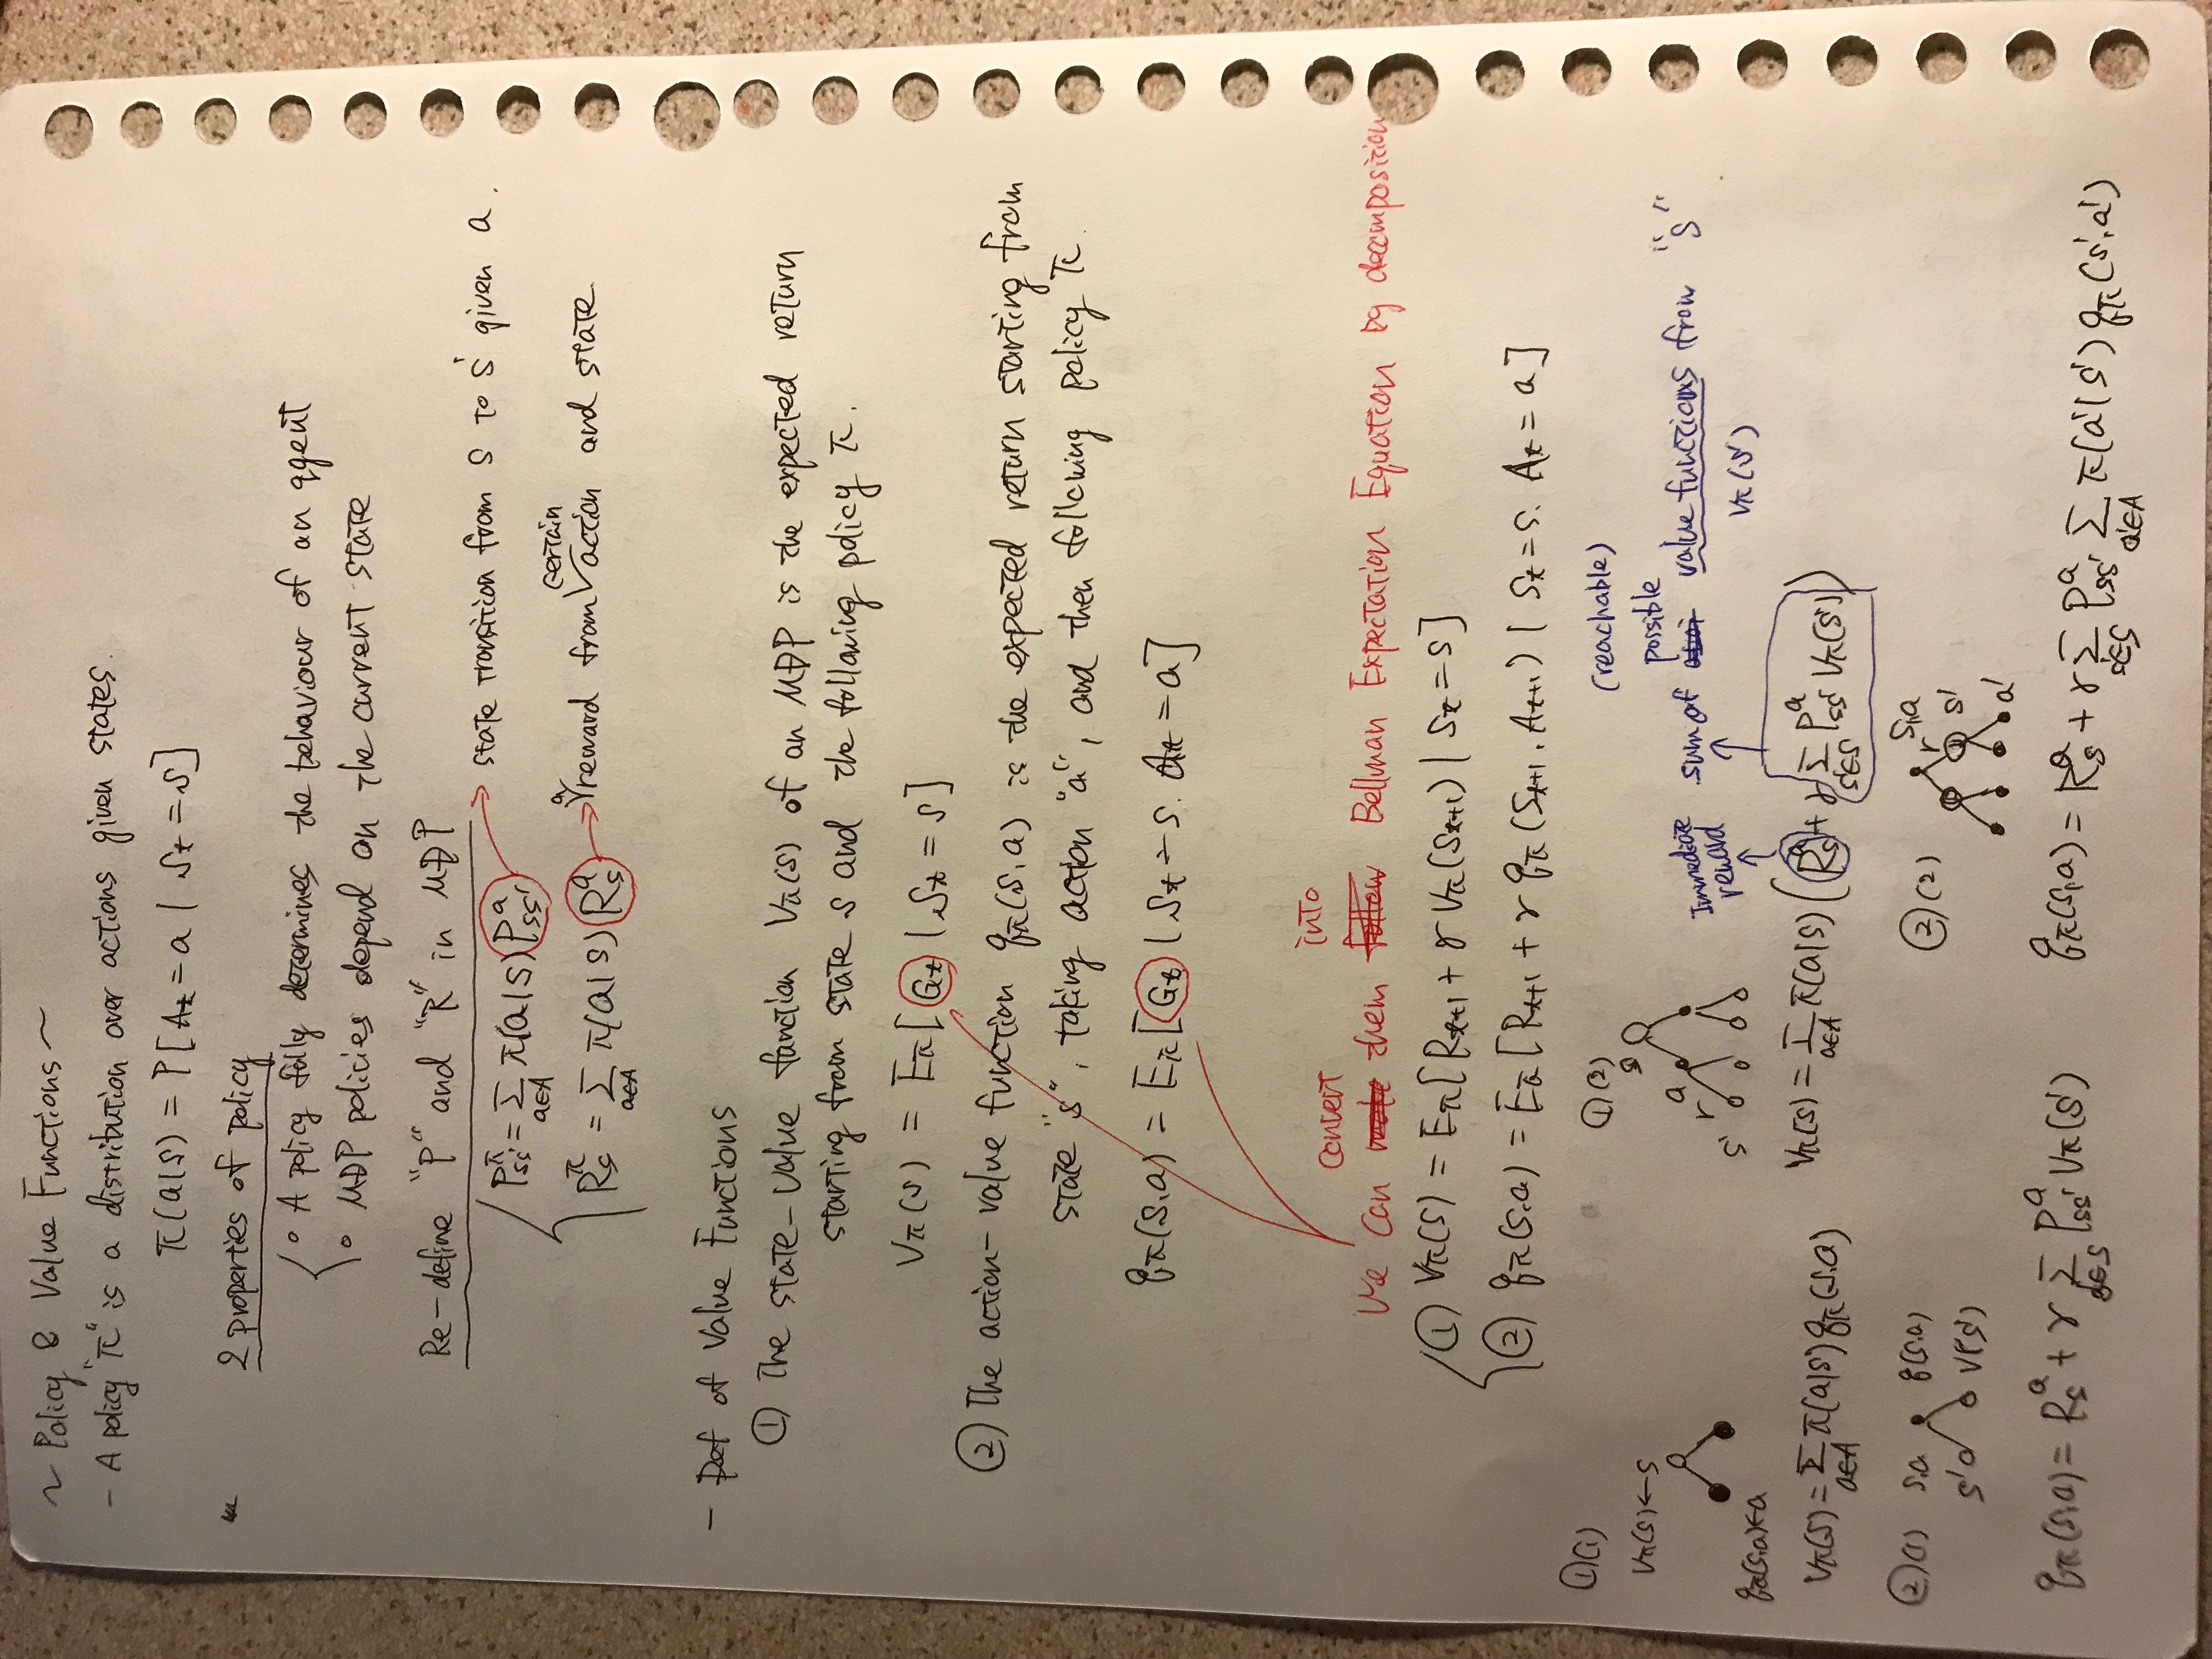 ~ Policy & Value Functions ~
- A policy "π" is a distribution over actions given states.
π(a|s) = P[At = a | St = s]
2 properties of policy
○ A policy fully determines the behaviour of an agent
○ MDP policies depend on the current state
Re-define "P" and "R" in MDP
P^π_ss' = Σ_{a∈A} π(a|s) P^a_ss' → state transition from s to s' given a.
R^π_s = Σ_{a∈A} π(a|s) R^a_s → a reward from certain action and state
- Def of Value Functions
① The state-value function Vπ(s) of an MDP is the expected return
starting from state s and the following policy π.
Vπ(s) = Eπ[Gt | St = s]
② The action-value function qπ(s,a) is the expected return starting from
state "s", taking action "a", and then following policy π.
qπ(s,a) = Eπ[Gt | St = s, At = a]
convert into
We can make them follow Bellman Expectation Equation by decomposition
① Vπ(s) = Eπ[Rt+1 + γ Vπ(St+1) | St = s]
② qπ(s,a) = Eπ[Rt+1 + γ qπ(St+1, At+1) | St = s, At = a]
①(1) ①(2) (reachable)
Vπ(s) ← s
s
possible
a
r
s'
Immediate reward
sum of value functions from "s"
Vπ(s')
qπ(s,a) ← a
Vπ(s) = Σ_{a∈A} π(a|s) qπ(s,a)
Vπ(s) = Σ_{a∈A} π(a|s) (R^a_s + γ Σ_{s'∈S} P^a_ss' Vπ(s'))
②(1) s,a q(s,a)
s' V(s')
②(2) s,a
r
s'
a'
qπ(s,a) = R^a_s + γ Σ_{s'∈S} P^a_ss' Vπ(s')
qπ(s,a) = R^a_s + γ Σ_{s'∈S} P^a_ss' Σ_{a'∈A} π(a'|s') qπ(s',a')